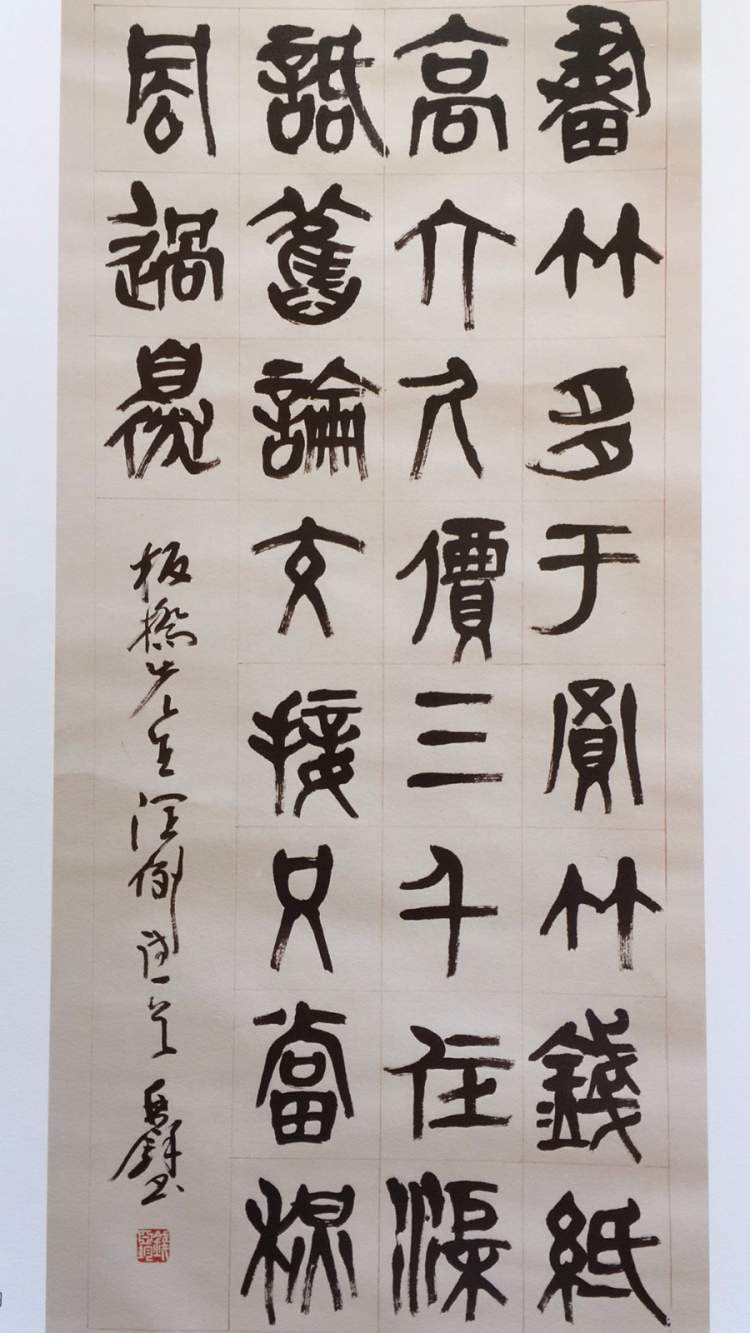 畫竹多于買竹錢紙
高六尺價三千任渠
話舊論交接只當秋
風過邊
板橋先生潤例詩一首 書